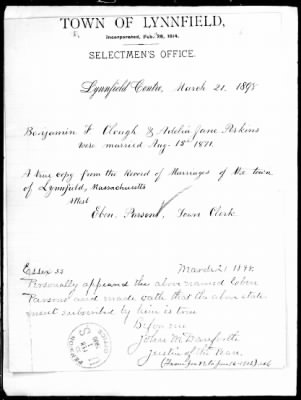 TOWN OF LYNNFIELD,
Incorporated, Feb. 28, 1814.
SELECTMEN'S OFFICE.
Lynnfield Centre, March 21, 1898
Benjamin F Clough & Adelia Jane Perkins
were married Aug. 15th 1871.
A true copy from the Record of Marriages of the town
of Lynnfield, Massachusetts
Attest
Eben. Parsons, Town Clerk
Essex ss March 21 1898
Personally appeared the above named Eben
Parsons and made oath that the above state-
ment subscribed by him is true
Before me
John M Danforth
Justice of the Peace